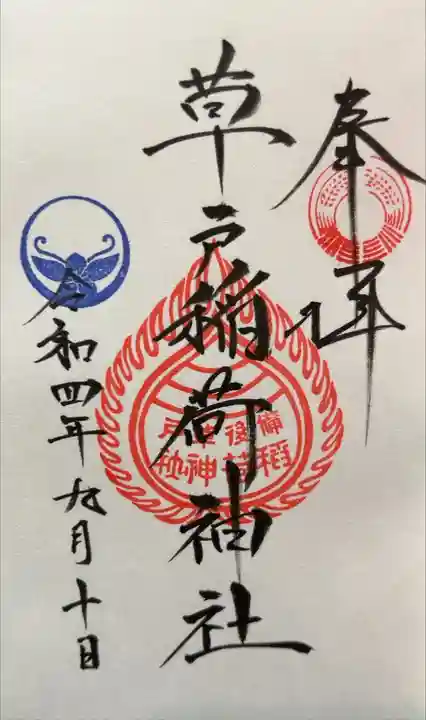 奉拝
草戸稲荷神社
備後草戸
稲荷神社
令和四年九月十日